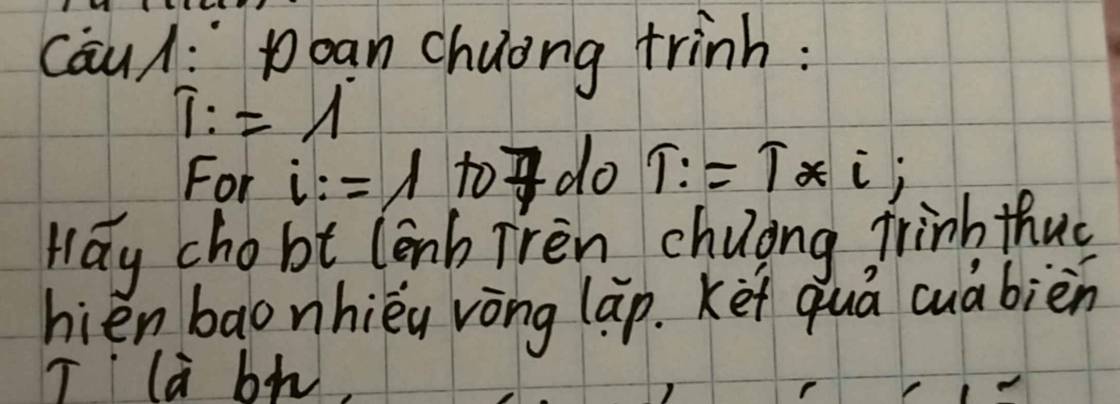 Câu 1: Đoạn chương trình :
T: = 1
For i: = 1 to 7 do T: = T * i ;
Hãy cho bt lệnh trên chương trình thực
hiện bao nhiêu vòng lặp. Kết quả của biến
T là bn